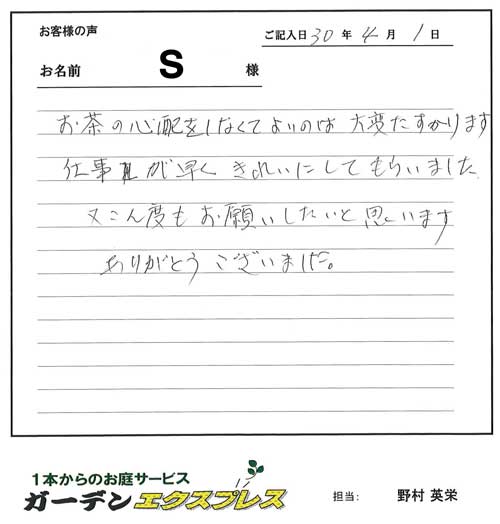 お客様の声
ご記入日 30 年 4 月 1 日
お名前 S 様
お茶の心配をしなくてよいのは 大変たすかります
仕事が早く きれいにしてもらいました
又こん度も お願いしたいと思います
ありがとうございました。
1本からのお庭サービス
ガーデンエクスプレス
担当: 野村 英栄